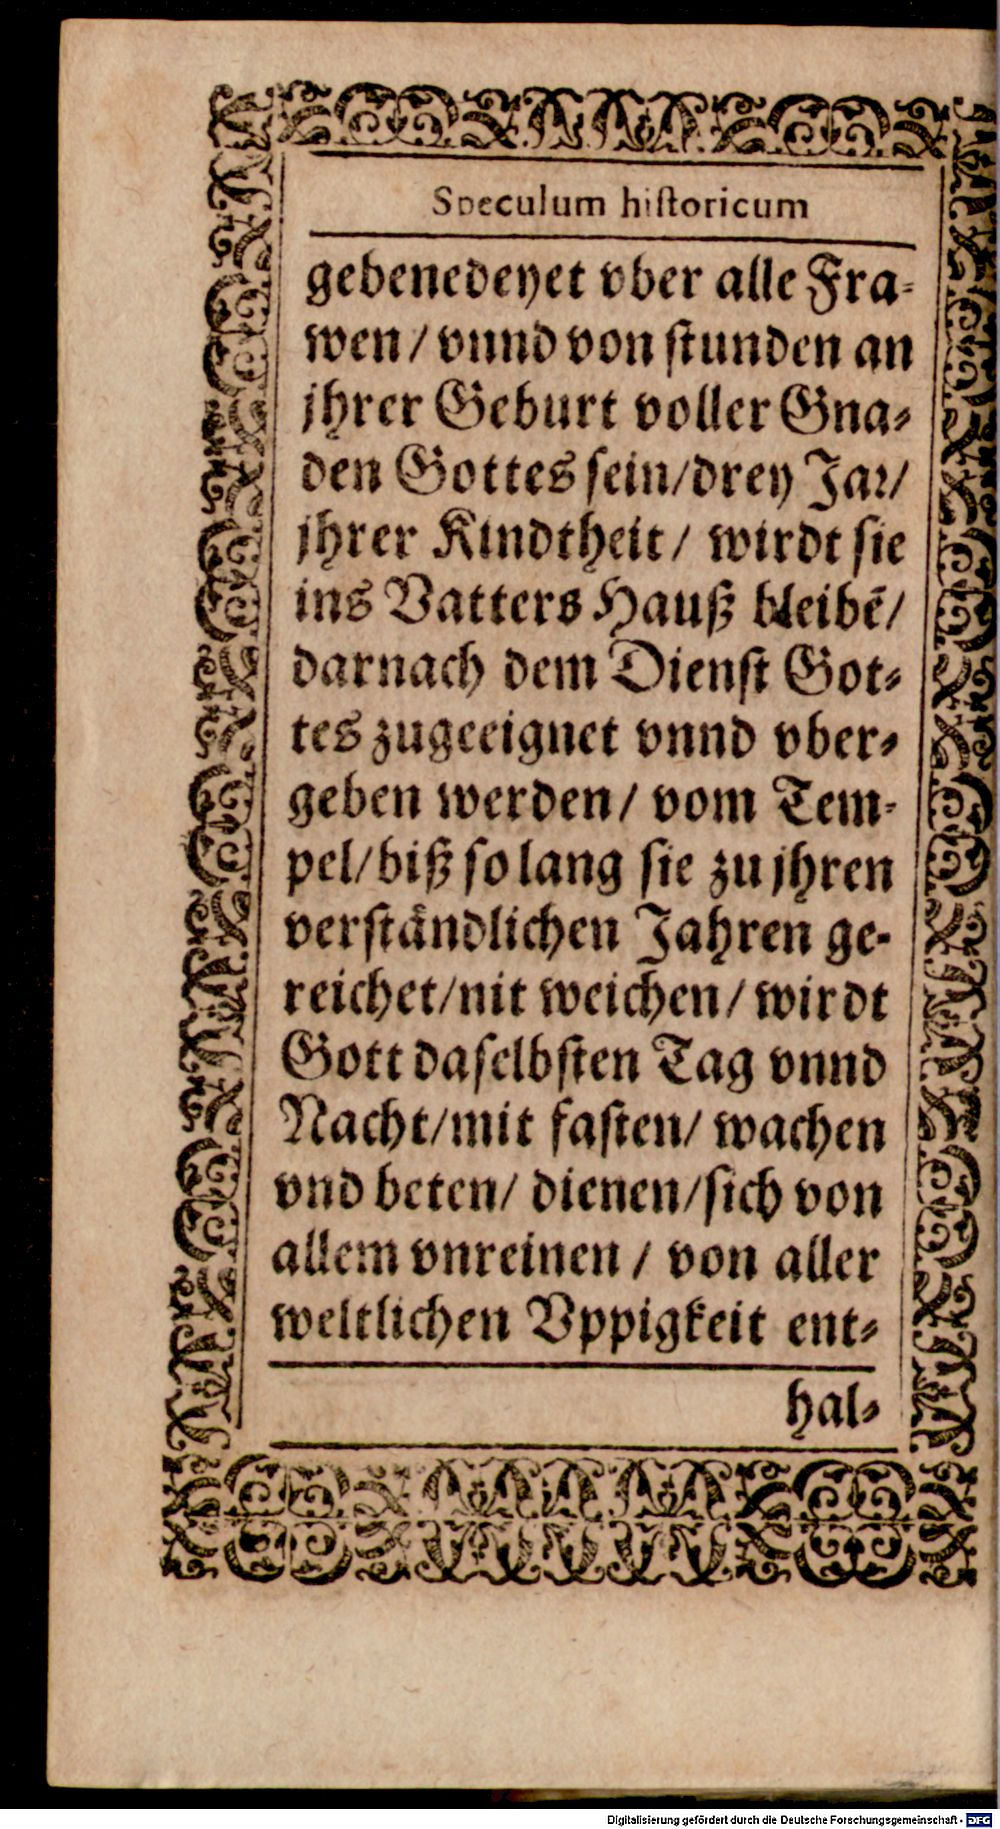 Speculum hiſtoricum
gebenedeyet vber alle Fra-
wen / vnnd von ſtunden an
jhrer Geburt voller Gna-
den Gottes ſein/drey Jar/
jhrer Kindtheit / wirdt ſie
ins Vatters Hauß bleibē/
darnach dem Dienſt Got-
tes zugeeignet vnnd vber-
geben werden/ vom Tem-
pel/biß ſo lang ſie zu jhren
verſtändlichen Jahren ge-
reichet/nit weichen/ wirdt
Gott daſelbſten Tag vnnd
Nacht/mit faſten/ wachen
vnd beten/ dienen/ſich von
allem vnreinen / von aller
weltlichen Vppigkeit ent-
hal-
Digitalisierung gefördert durch die Deutsche Forschungsgemeinschaft - DFG